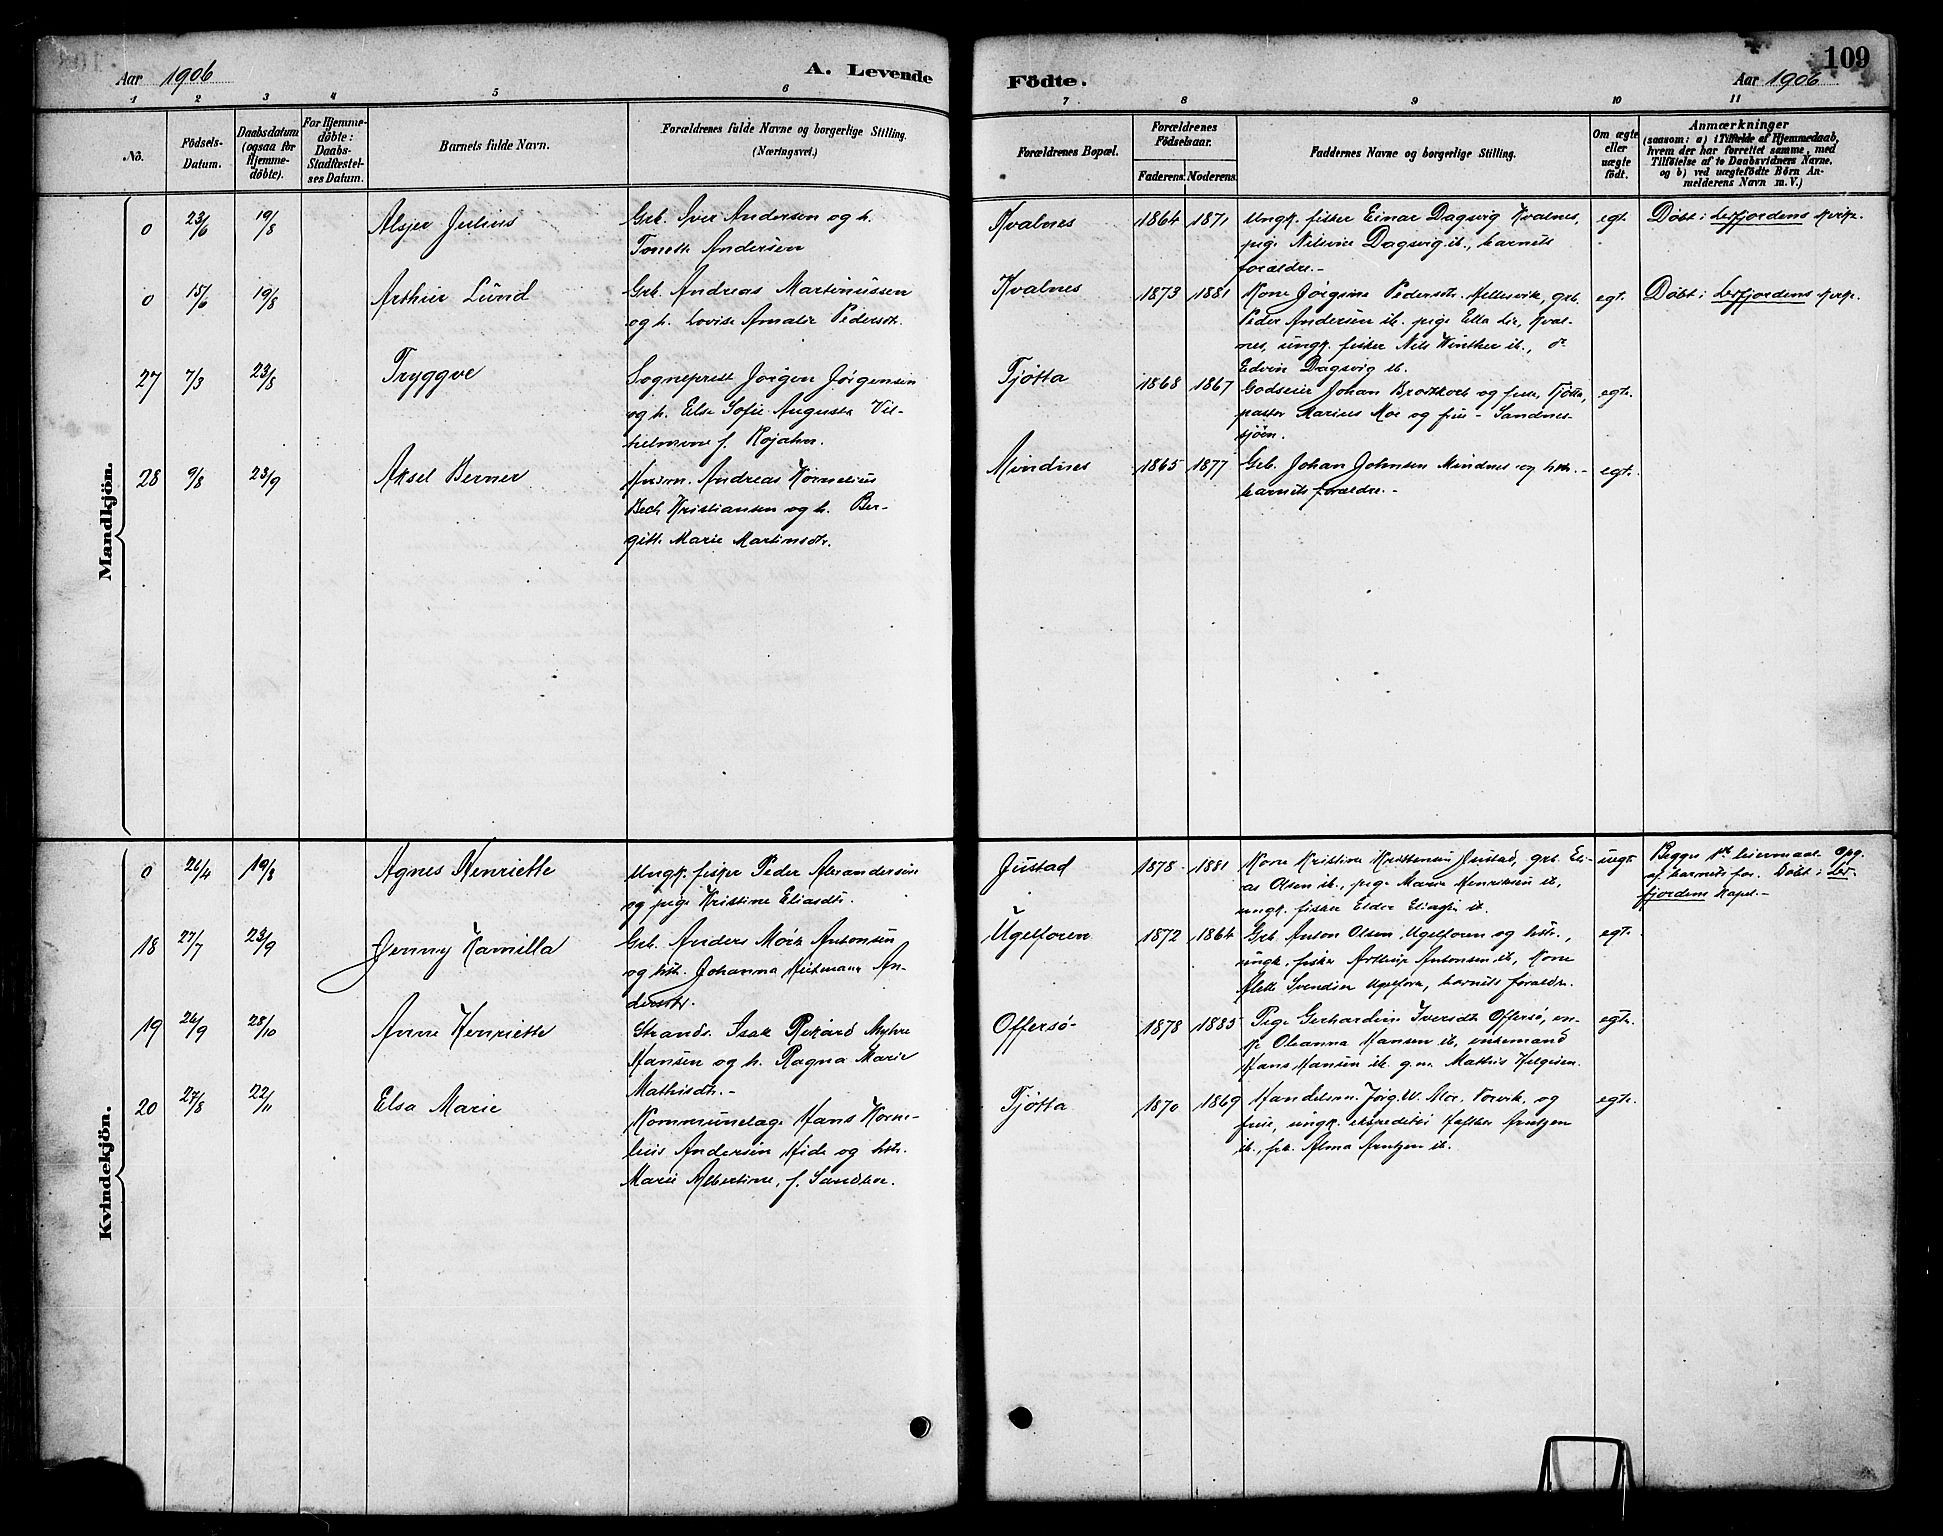 109
Aar 1906
A. Levende
Födte.
Aar 1906
1 2 3 4 5 6 7 8 9 10 11
No.
Födsels-
Datum.
Daabsdatum
(ogsaa for
Hjemme-
döbte).
For Hjemme-
döbte:
Daabs-
Stadfæstel-
ses Datum.
Barnets fulde Navn.
Forældrenes fulde Navne og borgerlige Stilling.
(Næringsvei.)
Forældrenes Bopæl.
Forældrenes
Födselsaar.
Faderens. Moderens.
Faddernes Navne og borgerlige Stilling.
Om ægte
eller
uægte
födt.
Anmærkninger
(saasom: a) i Tilfælde af Hjemmedaab,
hvem der har forrettet samme, med
Tilföielse af to Daabsvidners Navne,
og b) ved uægtefödte Börn An-
melderens Navn m. V.)
Mandkjön.
0 23/6 19/8 Alsjer Julius
Grb. Iver Andersen og h.
Tonette Andersen
Kvalnes 1864 1871
Ungk. fisker Einar Dagsvig Kvalnes,
pige Nilsine Dagsvig ib., barnets
forældre.-
egt. Döbt i Leirfjordens kirke.
0 15/6 19/8 Arthur Lund
Grb. Andreas Martinussen
og h. Lovise Amalie Pedersdtr.
Kvalnes 1873 1881
Kone Jörgine Pedersdtr. Mellesvik, grb.
Peder Andersen ib. pige Ella Lie, Kval-
nes, ungk. fisker Nils Winther ib., do
Edvin Dagsvig ib.
egt. Döbt i Leirfjordens kirke.
27 7/3 23/8 Tryggve
Sogneprest Jörgen Jörgensen
og h. Else Sofie Augusta Vil-
helmine f. Rojahn.
Tjötta 1868 1867
Godseier Johan Brodtkorb og frue, Tjötta,
pastor Marius Moe og frue - Sandnes-
sjöen.
egte.
28 9/8 23/9 Aksel Berner
Andreas Kornelius
Bech Kristiansen og h. Ber-
gitte Marie Martinsdtr.
Mindnes 1865 1877
Grb. Johan Johnsen Mindnes og hstr. -
barnets forældre.-
egt.
Kvindekjön.
0 26/4 19/8 Agnes Henriette
Ungk. fisker Peder Alexandersen
og pige Kristine Eliasdtr.
Justad 1878 1881
Kone Kristine Kristensen Justad, grb. Eli-
as Olsen ib., pige Marie Henriksen ib,
ungk. fisker
uegt. Begges 1ste leiermaal. Opg.
af barnets far. Döbt i Leir-
fjordens kapel.-
18 27/7 23/9 Jenny Kamilla
Grb. Anders Moëx Antonsen
og hstr. Johanna An-
dersdtr.
Ugelforen 1872 1864
Grb. Anton Olsen, Ugelforen og hstr.,
ungk. fisker Antonsen ib, Kone
Alette Svendsen Ugelforen, barnets forældre.
egt.
19 26/9 28/10 Anne Henriette
Strands. Isak Rikard Myhre
Hansen og h. Ragna Marie
Mathisdtr.-
Offersö- 1878 1885
Pige Gerhardine Iversdtr Offersö, en-
ke Oleanna Hansen ib, enkemand
Hans Hansen ib. g.m. Mathis Helgesen.
egte.
20 27/8 22/11 Elsa Marie
Kommunelæge Hans Korne-
lius Andersen Hide og hstr.
Marie Albertine, f. Sandhor.
Tjötta 1870 1869
Handelsm. Jörg. W. Moe, Forvik, og
frue, ungk. ekspeditör Arntzen
ib., frk. Alma Arntzen ib.
egte.